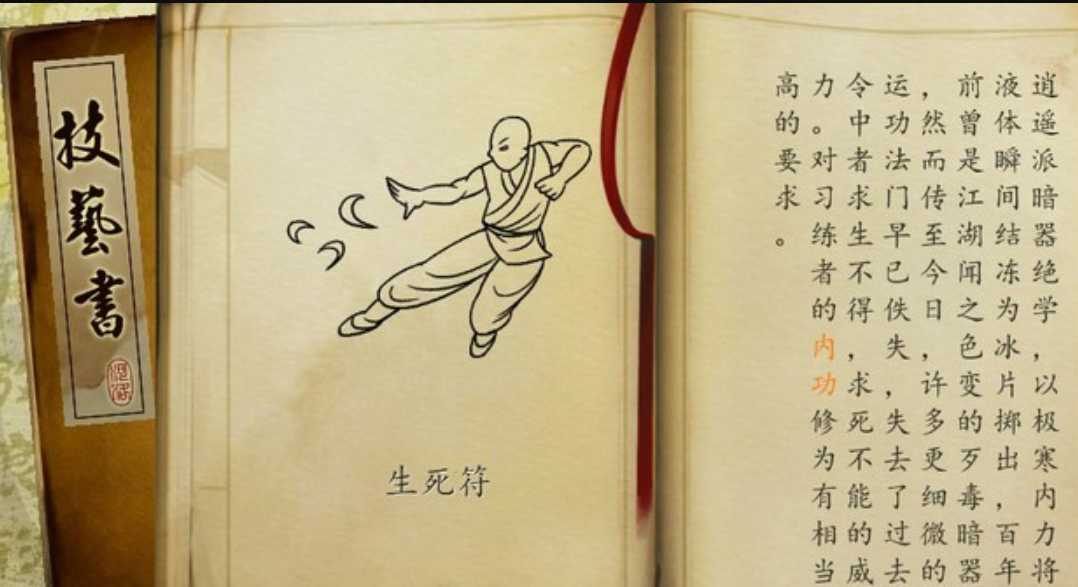 技藝書
生死符
逍遥派暗器绝学，以极寒内力将
液体瞬间结冻为冰片掷出，百年
前曾是江湖闻之色变的歹毒暗器
，然而传至今日，许多更细微的
运功法门早已佚失，失去了过去
令中者求生不得，求死不能的威
力。对习练者的内功修为有相当
高的要求。